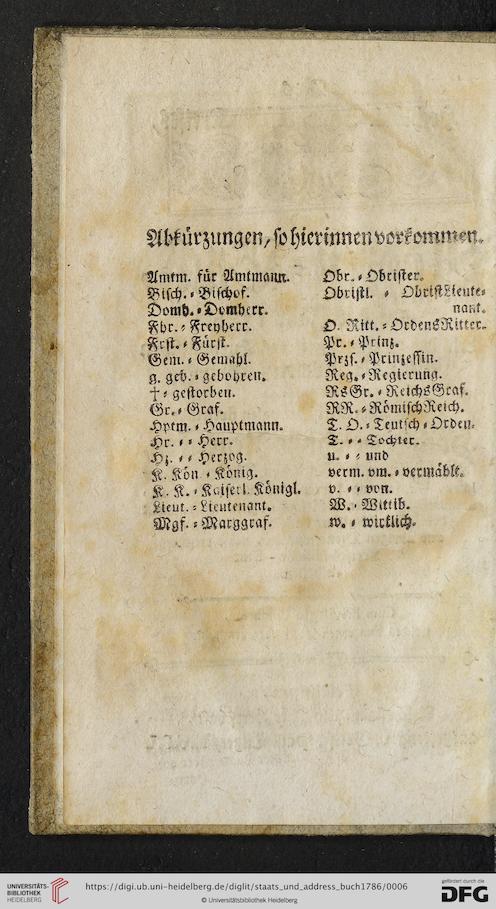 Abkürzungen, so hierinnen vorkommen.
Amtm. für Amtmann.
Bisch. = Bischof.
Domh. = Domherr.
Fhr. = Freyherr.
Frst. = Fürst.
Gem. = Gemahl.
g. geb. = gebohren.
† = gestorben.
Gr. = Graf.
Hptm. = Hauptmann.
Hr. = = Herr.
Hz. = = Herzog.
K. Kön = König.
K. K. = Kaiserl. Königl.
Lieut. = Lieutenant.
Mgf. = Marggraf.
Obr. = Obrister.
Obristl. = ObristLieute=
nant.
O. Ritt. = OrdensRitter.
Pr. = Prinz.
Przs. = Prinzessin.
Reg. = Regierung.
RsGr. = ReichsGraf.
RR. = RömischReich.
T. O. = Teutsch = Orden.
T. = = Tochter.
u. = = und
verm. vm. = vermählt.
v. = = von.
W. = Wittib.
w. = wirklich.
UNIVERSITÄTS-
BIBLIOTHEK
HEIDELBERG
https://digi.ub.uni-heidelberg.de/diglit/staats_und_address_buch1786/0006
© Universitätsbibliothek Heidelberg
gefördert durch die
DFG